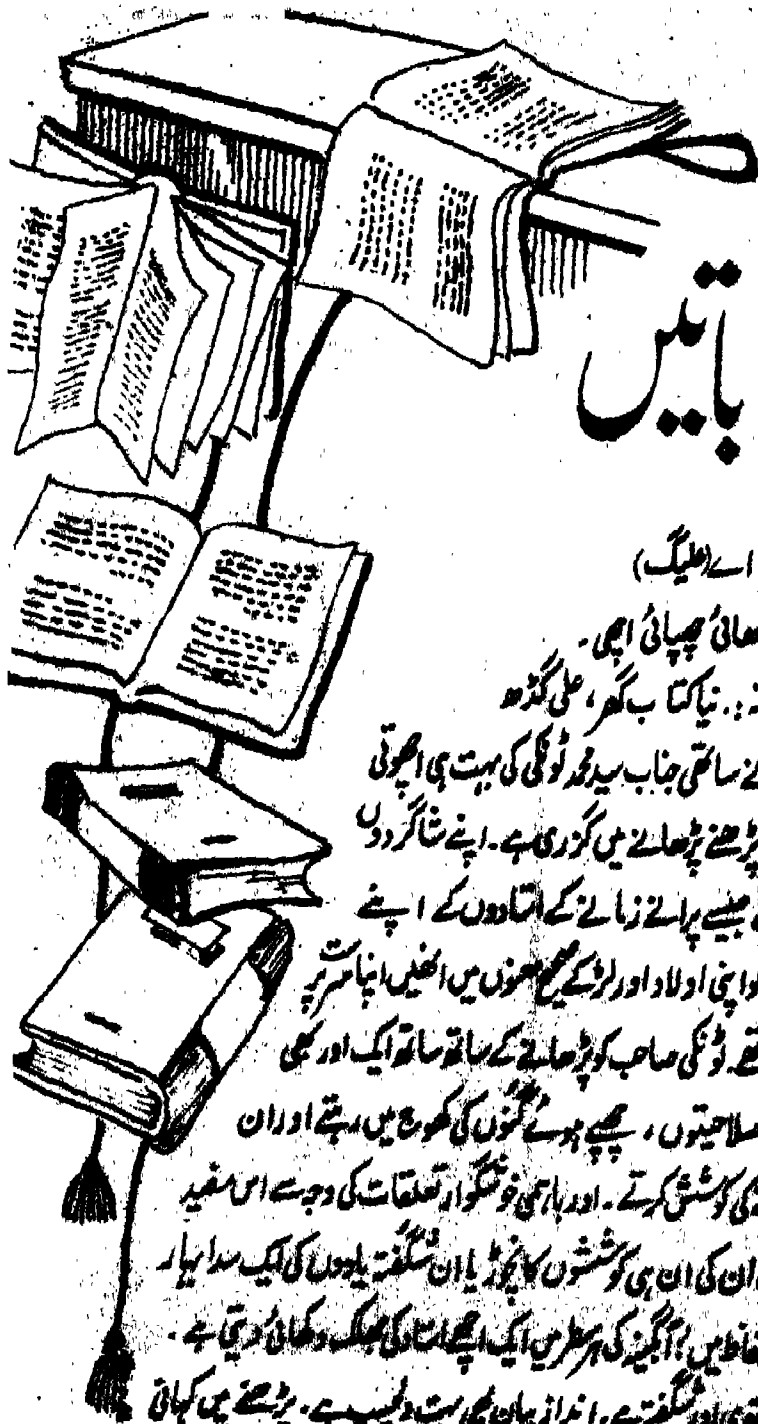 باتیں
اے (علیگ)
چھپائی اچھی۔
نیا کتاب گھر، علی گڑھ
ساتھی جناب سید محمد ٹونکی کی بہت ہی اچھوتی
پڑھنے پڑھانے میں گزری ہے۔ اپنے شاگردوں
جیسے پرانے زمانے کے استادوں کے اپنے
اپنی اولاد اور لڑکے صحیح معنوں میں انھیں اپنا سرپرست
ٹونکی صاحب کو پڑھانے کے ساتھ ساتھ ایک اور بھی
صلاحیتوں، چھپے ہوئے گُنوں کی کھوج میں رہتے اور ان
کی کوشش کرتے۔ اور باہمی خوشگوار تعلقات کی وجہ سے اس مفید
ان کی ان ہی کوششوں کا نچوڑ یا ان شگفتہ یادوں کی ایک سدا بہار
میں آبگینہ کی ہر سطر میں ایک اچھے استاد کی جھلک دکھائی دیتی ہے۔
اور شگفتہ ہے۔ انداز بیان بھی بہت دلچسپ ہے۔ پڑھنے میں کہانی